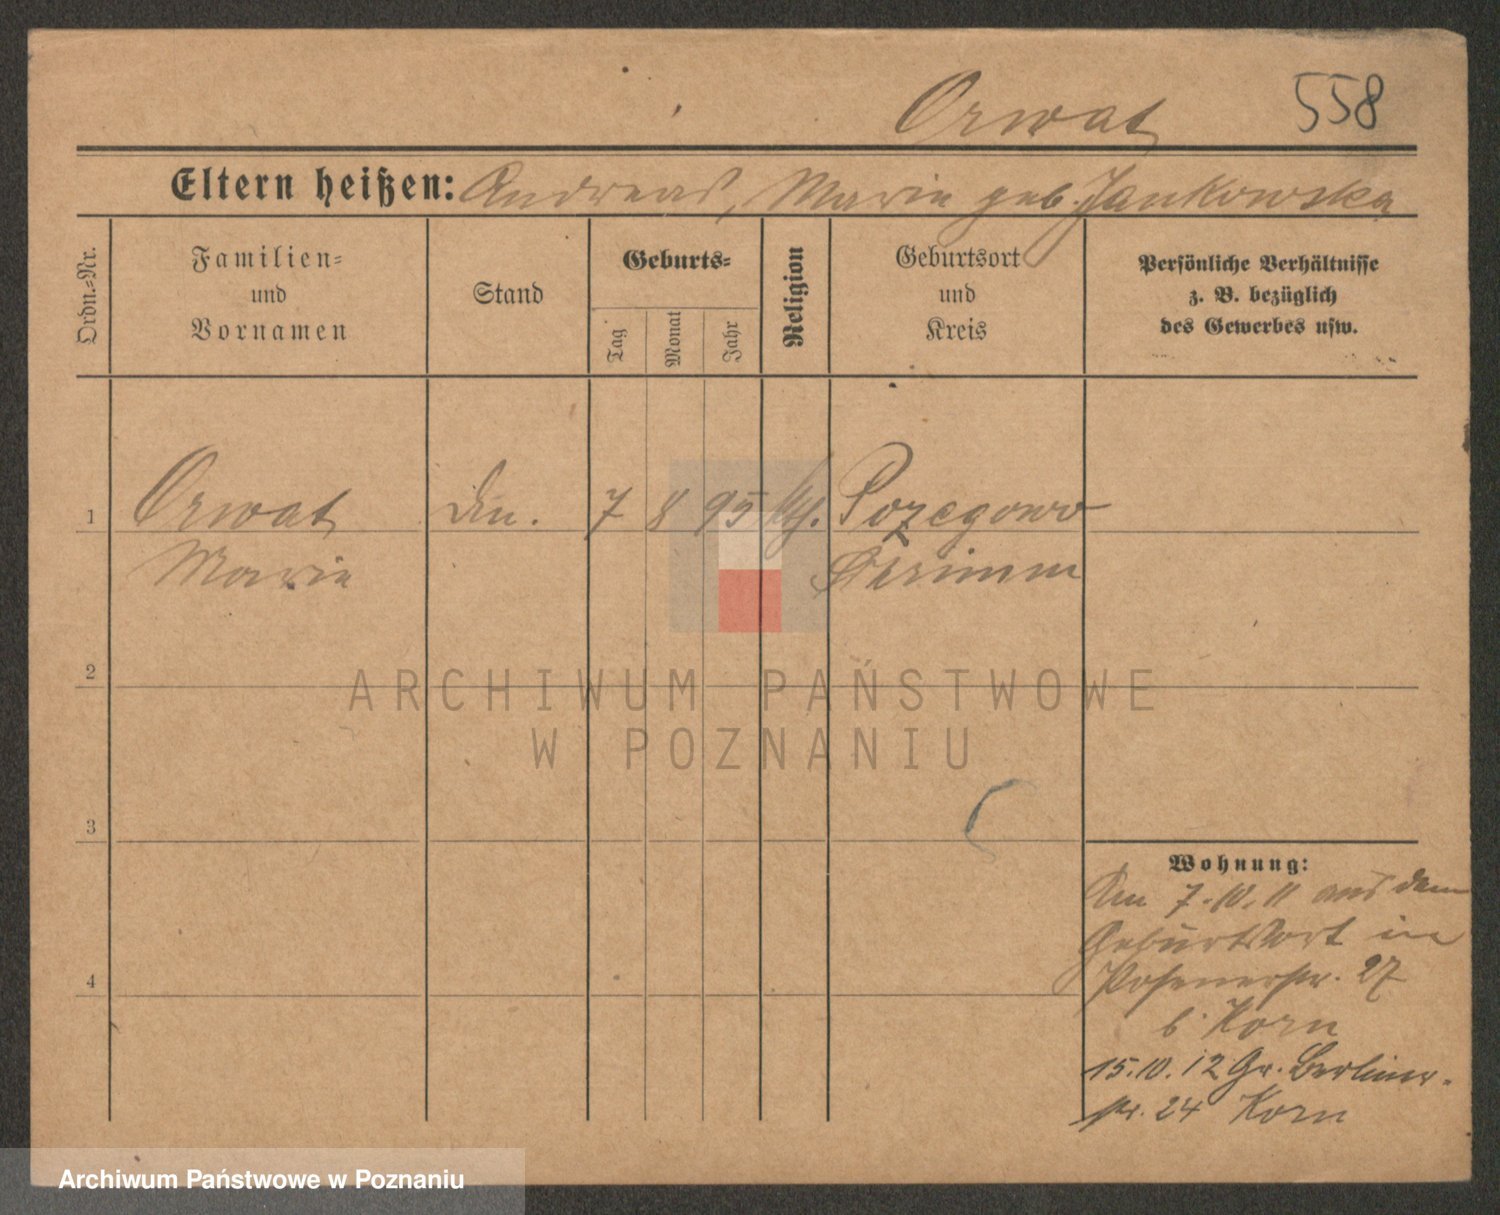 Orwat 558
Eltern heißen: Andreas, Marie geb. Jankowska
Ordn.-Nr.
Familien-
und
Vornamen
Stand
Geburts-
Tag
Monat
Jahr
Religion
Geburtsort
und
Kreis
Persönliche Verhältnisse
z. B. bezüglich
des Gewerbes usw.
1 Orwat 7 8 95 Pozegowo
Marie Schrimm
2
3
4
Wohnung:
Am 7.10.11 aus dem
Geburtsort in
Posenerstr. 27
b. Korn
15.10.12 Gr. Berliner-
str. 24 Korn
ARCHIWUM PAŃSTWOWE
W POZNANIU
Archiwum Państwowe w Poznaniu